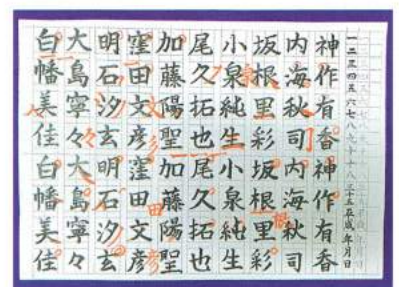 一二三四五六七八九十 平成 年月日
神作有香神作有香
内海秋司内海秋司
坂根里彩坂根里彩
小泉純生小泉純生
尾久拓也尾久拓也
加藤陽聖加藤陽聖
窪田文彦窪田文彦
明石汐玄明石汐玄
大島寧々大島寧々
白幡美佳白幡美佳